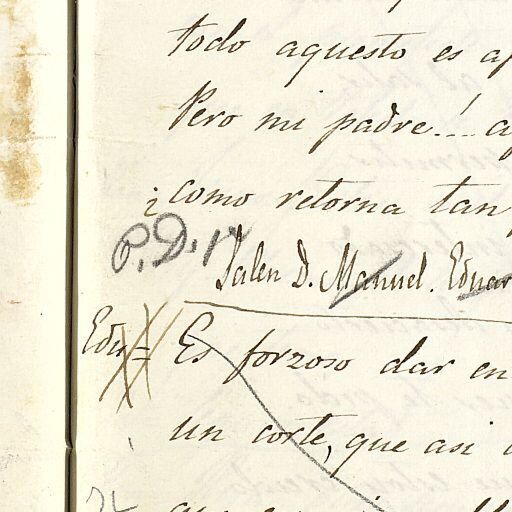 todo aquesto es
Pero mi padre..!
¿como retorna tan
P. D. 1ª
Salen D. Manuel. Eduar
Edu = Es forzoso dar en
un corte, que asi